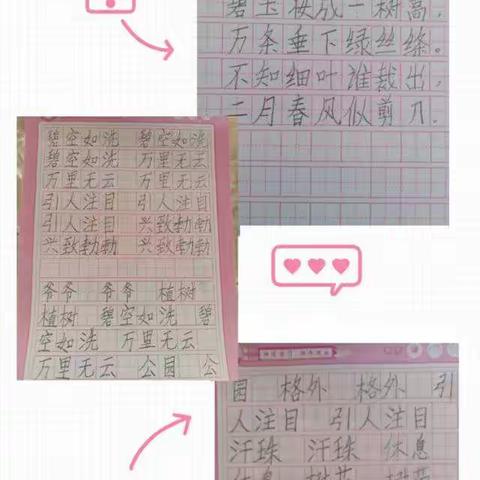 碧玉妆成一树高,
万条垂下绿丝绦。
不知细叶谁裁出,
二月春风似剪刀.
碧空如洗 碧空如洗
碧空如洗 万里无云
万里无云 万里无云
引人注目 引人注目
引人注目 兴致勃勃
兴致勃勃 兴致勃勃
爷爷 爷爷 植树
植树 碧空如洗 碧
空如洗 万里无云
万里无云 公园 公
园 格外 格外 引
人注目 引人注目
汗珠 汗珠 休息
休息